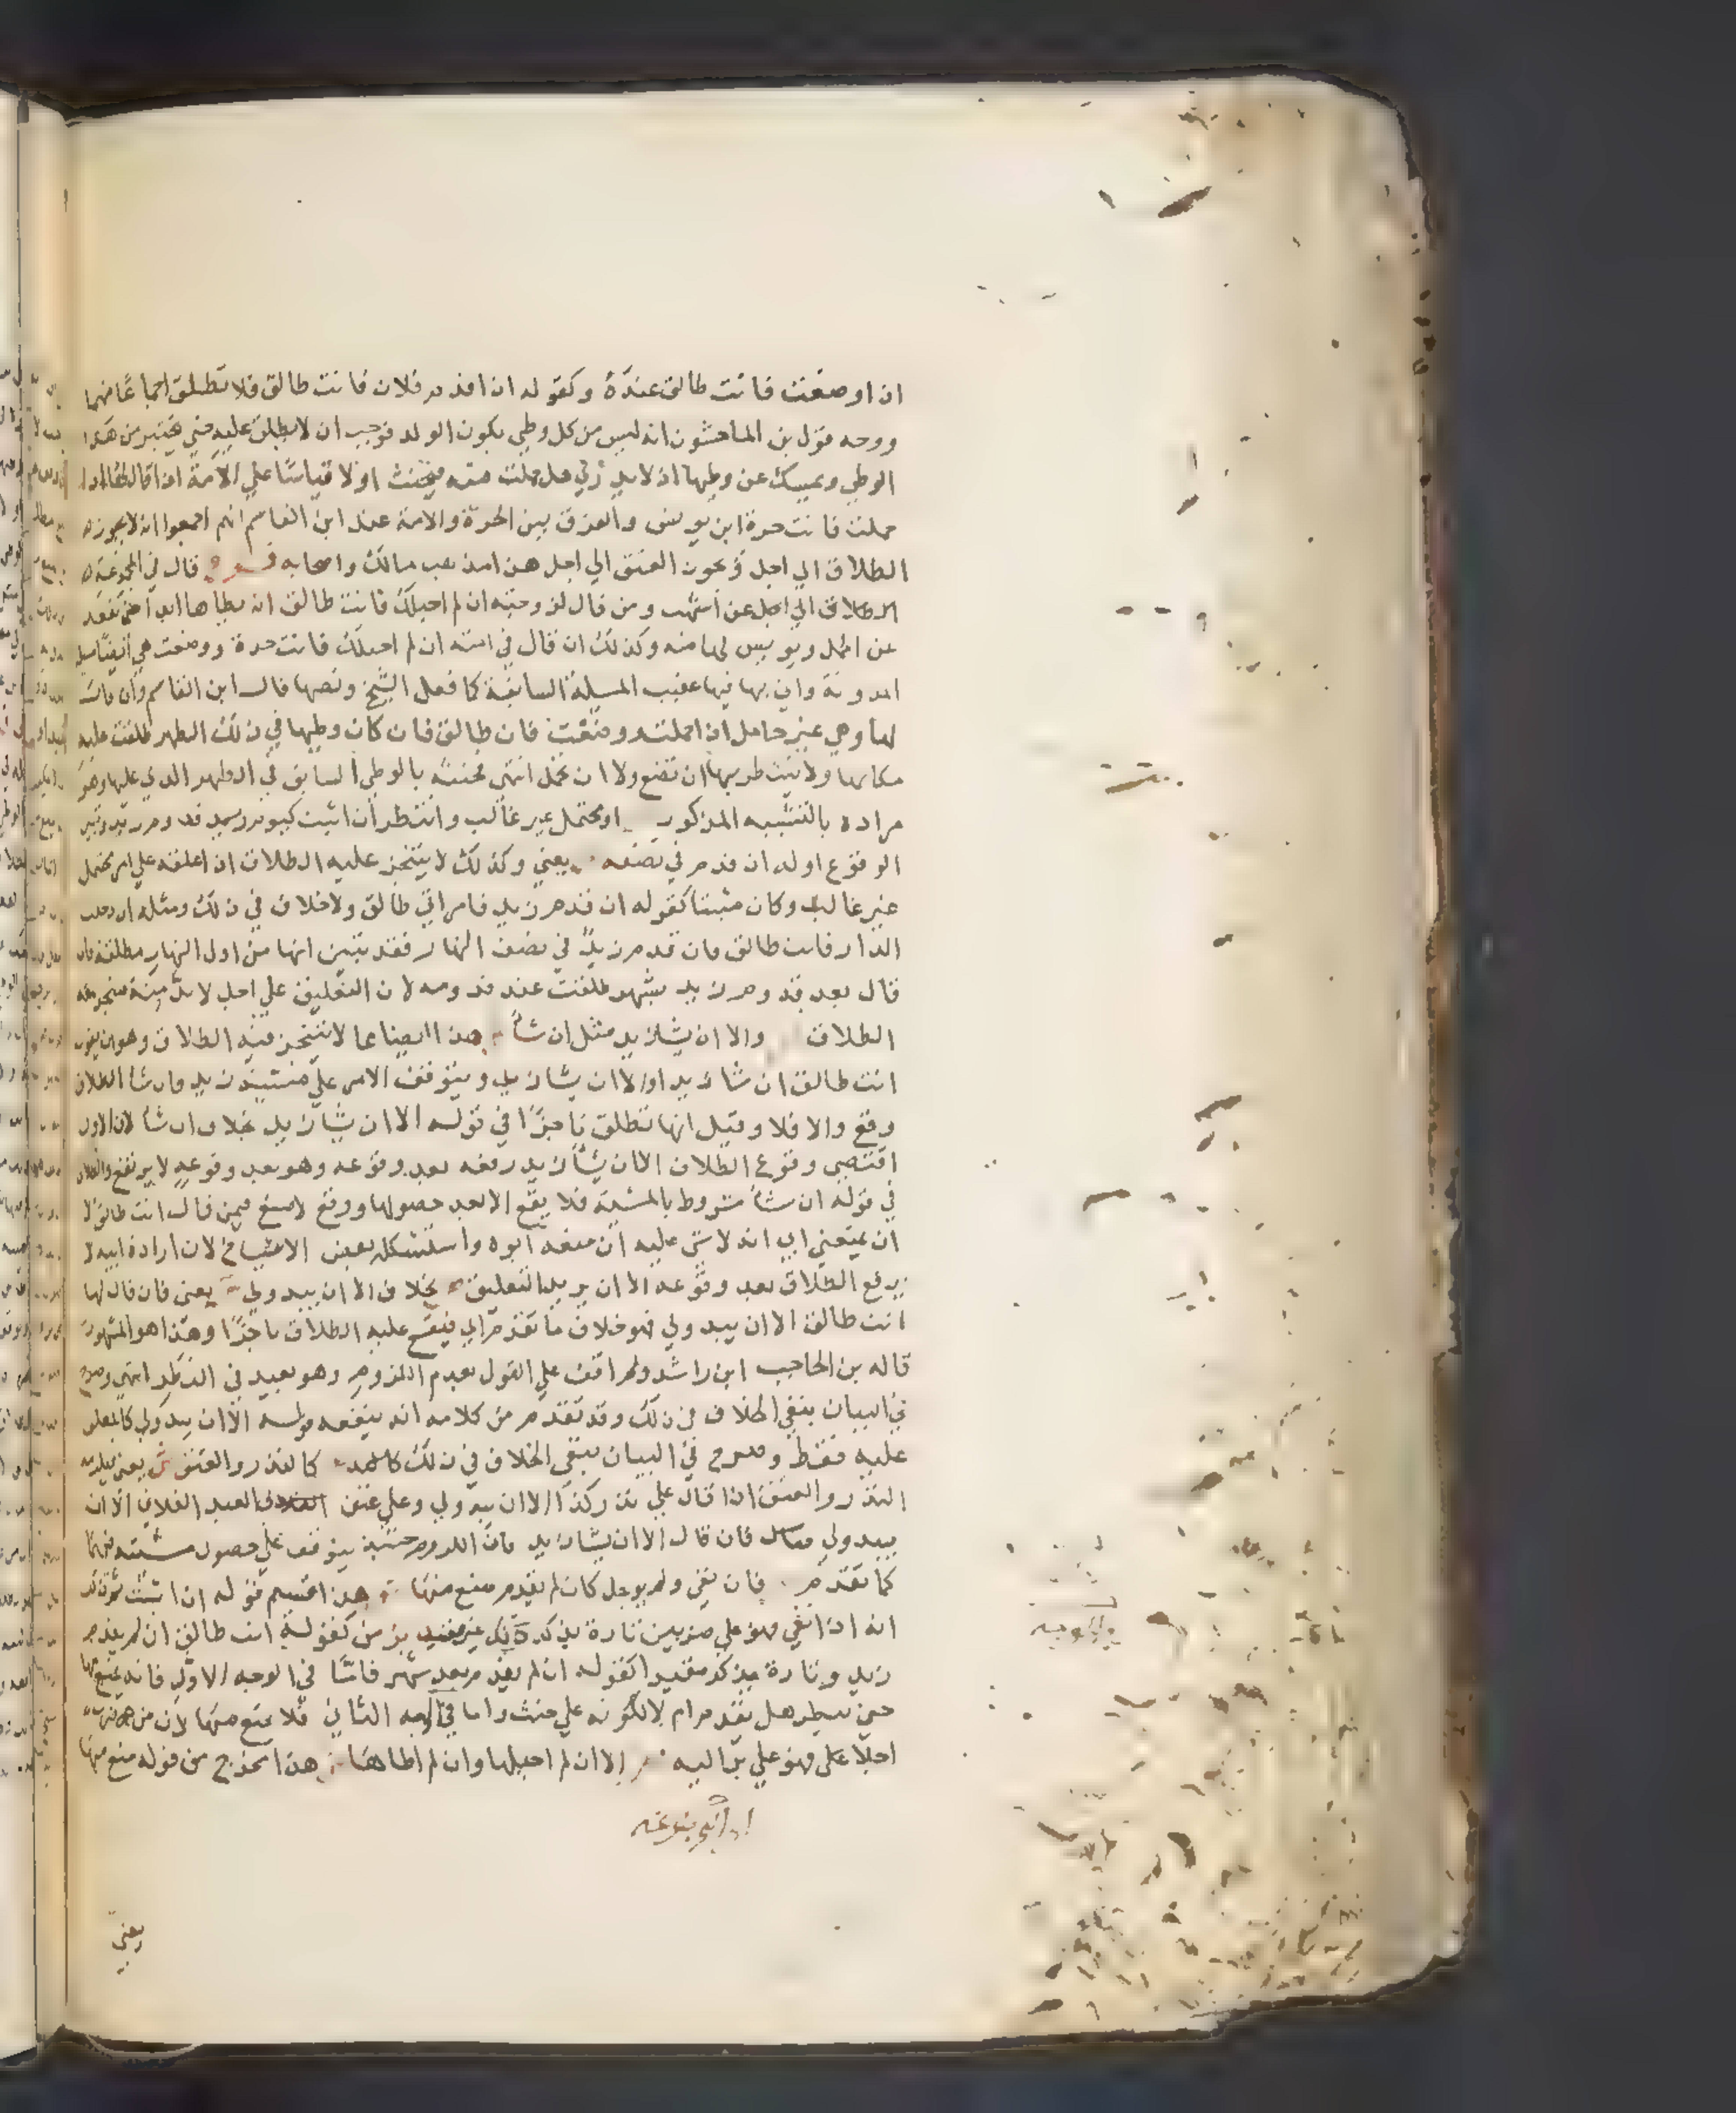 ان او صفت فانت طالق عنده وكقوله ان اقدم فلان فانت طالق فلا تطلق اجماعا منهما
ووجه قول بن الماجشون انه ليس من كل وطي يكون الولد فوجب ان لا يطلق عليه حتي يختبر من هذا
الوطي ويمسك عن وطيها اذ لا يدري هل حملت منه فيحنث او لا قياسا علي الامة اذا قال لها اذا
حملت فانت حرة ابن يونس والفرق بين الحرة والامة عند ابن القاسم انهم اجمعوا انه لا يجوز له
الطلاق الي اجل ويجوز العتق الي اجل هذا مذهب مالك واصحابه فرع قال في المجموعة
الطلاق الي اجل عن اشهب ومن قال لزوجته ان لم احبلك فانت طالق انه يطاها ابدا حتي تقعد
عن الحمل وييس لها منه وكذلك ان قال في امته ان لم احبلك فانت حرة ووضعت هي ايضا
المدونة واتي بها فيها عقيب المسيلة السابقة كما فعل الشيخ ونصها قال ابن القاسم وان قال
لها وهي غير حامل اذا حملت ووضعت فانت طالق فان كان وطيها في ذلك الطهر طلقت عليه
مكانها ولا ينتظر بها ان تضع ولا ان تحمل انتهي فحنثه بالوطي السابق في الطهر الذي عليها وهو
مراده بالتشبيه المذكور او محتمل غير غالب وانتظر ان اثبت كيوم قدوم زيد وتبين
الوقوع اوله ان قدم في نصفه يعني وكذلك لا يتنجز عليه الطلاق اذا علقه علي امر محتمل
غير غالب وكان مثبتا كقوله ان قدم زيد فامراتي طالق ولا خلاف في ذلك ومثله ان دخلت
الدار فانت طالق فان قدم زيد في نصف النهار فقد تبين انها من اول النهار مطلقة فان
قال بعد قدوم زيد بشهر طلقت عند قدومه لان التعليق علي اجل لا بد منه منجز معه
الطلاق والا ان يشا زيد مثل ان شا هذا ايضا مما لا يتنجز فيه الطلاق وهو ان يقول
انت طالق ان شا زيد او الا ان يشا زيد ويتوقف الامر علي مشيئة زيد فان شا الطلاق
وقع والا فلا وقيل انها تطلق ناجزا في قوله الا ان يشا زيد بخلاف ان شا لان الاول
اقتضي وقوع الطلاق الا ان يشا زيد رفعه بعد وقوعه وهو بعد وقوعه لا يرتفع والطلاق
في قوله ان شا مشروط بالمشية فلا يقع الا بعد حصولها ووقع لاصبغ فيمن قال انت طالق الا
ان يمنعني ابي انه لا شي عليه ان منعه ابوه واستشكله بعض الاشياخ لان ارادة ابيه لا
يرفع الطلاق بعد وقوعه الا ان يريد التعليق بخلاف الا ان يبدو لي يعني فان قال لها
انت طالق الا ان يبدو لي فهو خلاف ما تقدم اي فيقع عليه الطلاق ناجزا وهذا هو المشهور
قاله بن الحاجب ابن راشد ولم اقف علي القول بعدم اللزوم وهو بعيد في النظر انتهي وصرح
في البيان بنفي الخلاف في ذلك وقد تقدم من كلامه انه ينفعه قوله الا ان يبدو لي كالمعلق
عليه فقط وصرح في البيان بنفي الخلاف في ذلك كالنذر والعتق ش يعني
النذر والعتق اذا قال علي نذر كذا الا ان يبدو لي وعلي عتق العبد الفلاني الا ان
يبدو لي فان قال الا ان يشا زيد فان اللزوم حينئذ يتوقف علي حصول مشيئته فيهما
كما تقدم فان نفي ولم يوجل كان لم يقدم منع منها هذا قسيم قوله ان اثبت
انه اذا نفي فهو علي ضربين تارة يذكر ذلك غير مقيد بزمن كقوله انت طالق ان لم يقدم
زيد وتارة يذكره مقيدا كقوله ان لم يقدم بعد شهر فاما في الوجه الاول فانه يمنع منها
حتي ينظر هل يقدم ام لا لكونه علي حنث واما في الوجه الثاني فلا يمنع منها لان من ضرب
اجلا علي فهو علي بر اليه الا ان لم احبلها وان لم اطاها هذا مخرج من قوله منع منها
يعني